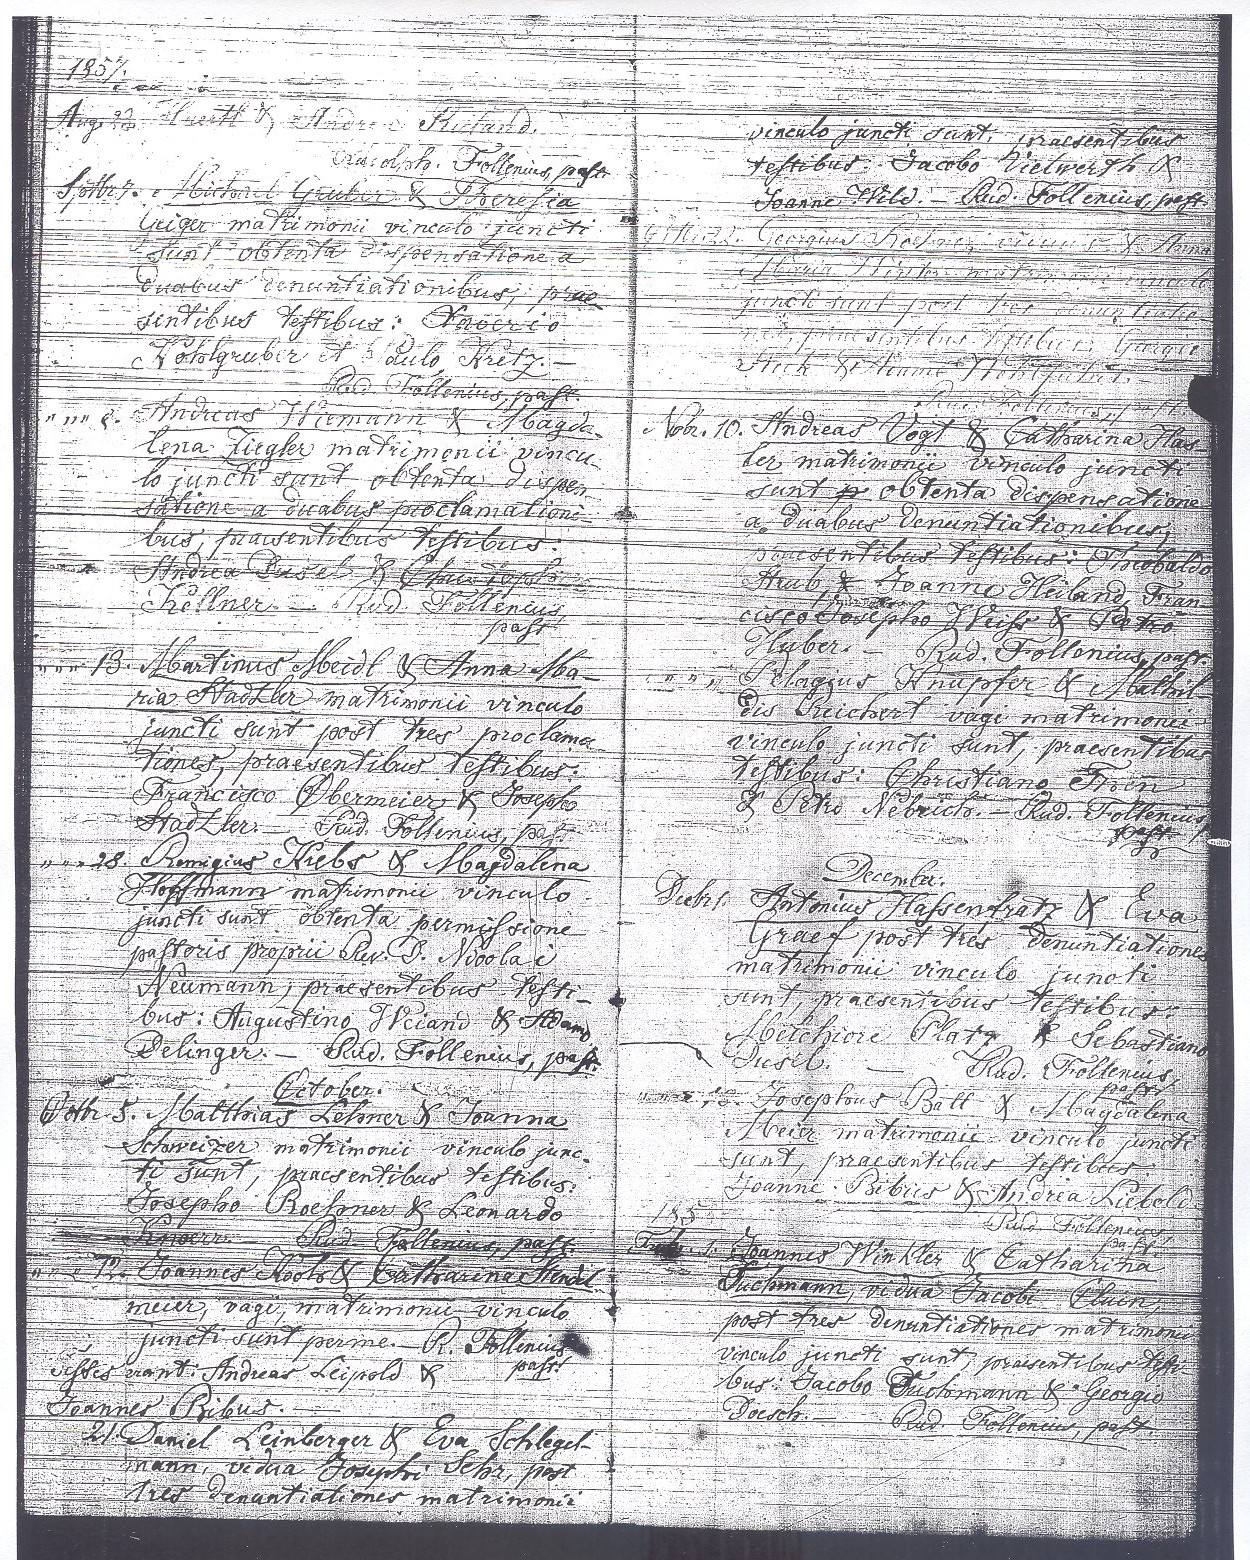 1857.
Aug. 23. & Andrea Ruland.
Rudolph. Follenius, past.
Septbr. 7. Michael Gruber & Theresia
Geiger matrimonii vinculo juncti
sunt obtenta dispensatione a
duabus denuntiationibus, prae
sintibus testibus: Xaverio
Kohlgruber et Paulo Kretz. —
Rud. Follenius, past.
" " " 8. Andreas Wiemann & Magda-
lena Ziegler matrimonii vincu-
lo juncti sunt obtenta dispen-
satione a duabus proclamationi-
bus, praesentibus testibus:
Andrea Dusel & Christoph
Kellner. — Rud. Follenius
past.
" " " 13. Martinus Meidl & Anna Ma-
ria Stadtler matrimonii vinculo
juncti sunt post tres proclama-
tiones, praesentibus testibus:
Francisco Obermeier & Josepho
Stadtler. — Rud. Follenius, past.
" " " 28. Remigius Krebs & Magdalena
Hoffmann matrimonii vinculo
juncti sunt obtenta permissione
pastoris proprii Rev. D. Nicolai
Neumann, praesentibus testi-
bus: Augustino Weiand & Adamo
Delinger. — Rud. Follenius, past.
October.
Octbr. 5. Matthias Lehner & Joanna
Schweizer matrimonii vinculo junc-
ti sunt, praesentibus testibus:
Josepho Roesner & Leonardo
Knoerr. Rud. Follenius, past.
" " " 12. Joannes Koob & Catharina
meier, vagi, matrimonii vinculo
juncti sunt per me. — R. Follenius
past.
Testes erant: Andreas Leipold &
Joannes Bibus. —
21. Daniel Leinberger & Eva Schlegel-
mann, vidua Josephi Sehr, post
tres denuntiationes matrimonii
vinculo juncti sunt, praesentibus
testibus: Jacobo Vielwerth &
Joanne Wild. — Rud. Follenius, past.
Georgius & Anna
Maria matrimonii vinculo
juncti sunt post tres denuntiatio-
nes, praesentibus testibus: Georgio
&
Rud. Follenius, past.
Nobr. 10. Andreas Vogt & Catharina Has-
ler matrimonii vinculo juncti
sunt obtenta dispensatione
a duabus denuntiationibus,
praesentibus testibus: Theobaldo
Straub & Joanne Heiland, Fran-
cisco Josepho Weiss & Petro
Huber. — Rud. Follenius, past.
" " " " Pelagius Knupfer & Mathil-
dis Reichert vagi matrimonii
vinculo juncti sunt, praesentibus
testibus: Christiano Fren
& Petro Nebrich. — Rud. Follenius,
past.
December.
Decbr 1. Antonius Hassenfratz & Eva
Graef post tres denuntiationes
matrimonii vinculo juncti
sunt, praesentibus testibus:
Melchiore Platz & Sebastiano
Dusel. — Rud. Follenius,
past.
Josephus Batt & Magdalena
Meier matrimonii vinculo juncti
sunt, praesentibus testibus
Joanne Bibus & Andrea Liebold
Rud. Follenius,
past.
185
1. Joannes Winkler & Catharina
Tuchmann, vidua Jacobi Cluin,
post tres denuntiationes matrimonii
vinculo juncti sunt, praesentibus testi-
bus: Jacobo Tuchmann & Georgio
Doesch. — Rud. Follenius, past.